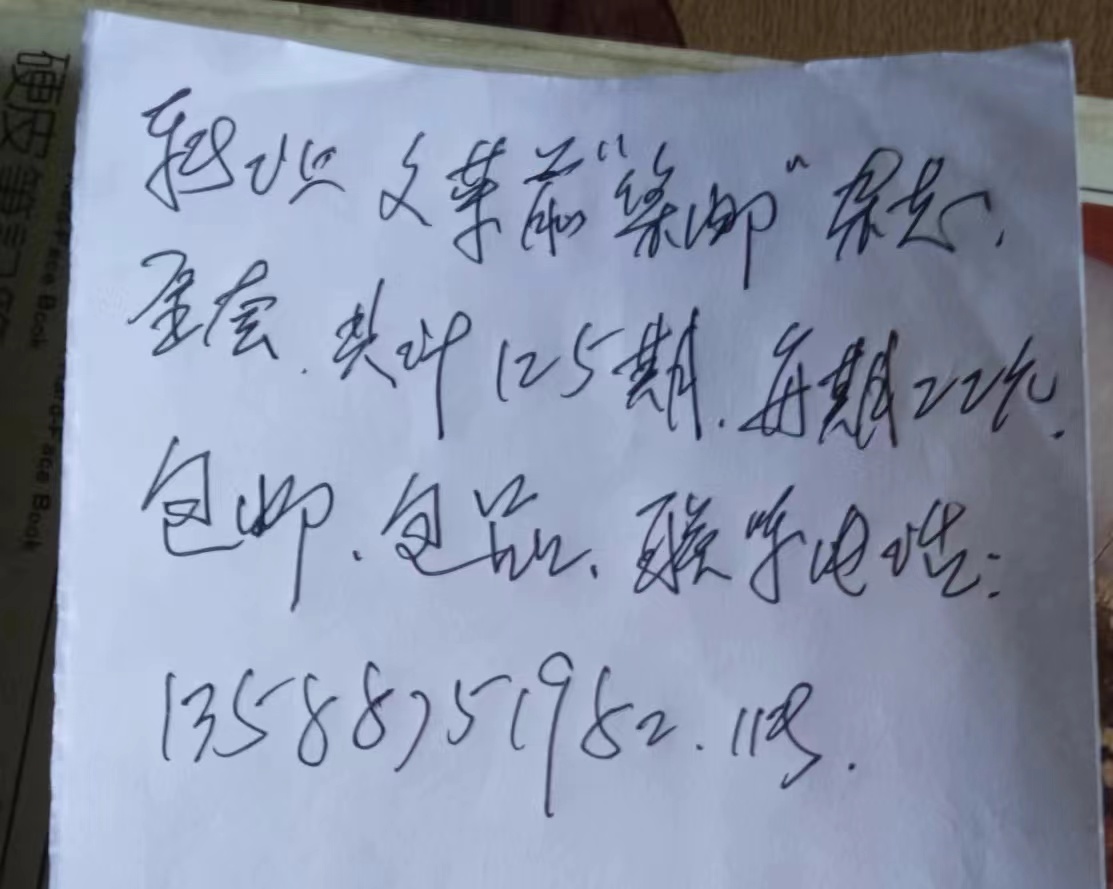 转让文革前“集邮”杂志、
全套.共计125期.每期22元.
包邮、包品、联系电话:
13588751982.
硬皮笔记本
Hard Face Book
Hard-Face Book